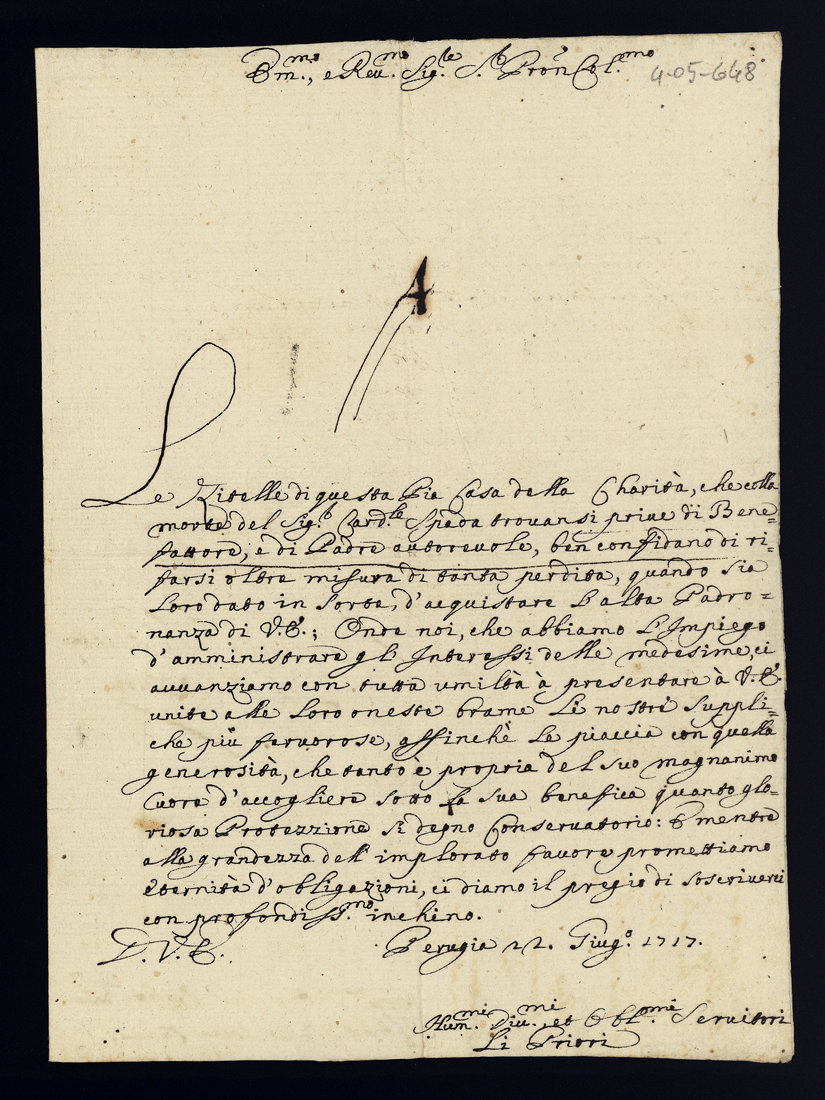 Em.mo, e Reu.mo Sig.re S.r Pron Col.mo
4-05-648
Le Zitelle di questa Pia Casa della Charità, che colla
morte del Sig.r Card.le Spada trovansi prive di Bene=
fattore, e di Padre autorevole, ben confidano di ri=
farsi oltre misura di tanta perdita, quando sia
loro dato in sorte, d'acquistare l'alta Padro=
nanza di V.E.; Onde noi, che abbiamo l'Impiego
d'amministrare gl' Interessi delle medesime, ci
avvanziamo con tutta umiltà à presentare à V.E.
unite alle loro oneste brame li nostri suppli=
che più fervorose, affinchè le piaccia con quella
generosità, che tanto è propria del suo magnanimo
Cuore d'accogliere sotto la sua benefica quanto glo=
riosa Protezzione sì degno Conservatorio: E mentre
alla grandezza dell' implorato favore promettiamo
eternità d'obligazioni, ci diamo il pregio di soscriverci
con profondiss.mo inchino.
D. V. E.
Perugia 22. Giug.o 1717.
Hum.mi Diu.mi et Obl.mi Servitori
Li Priori